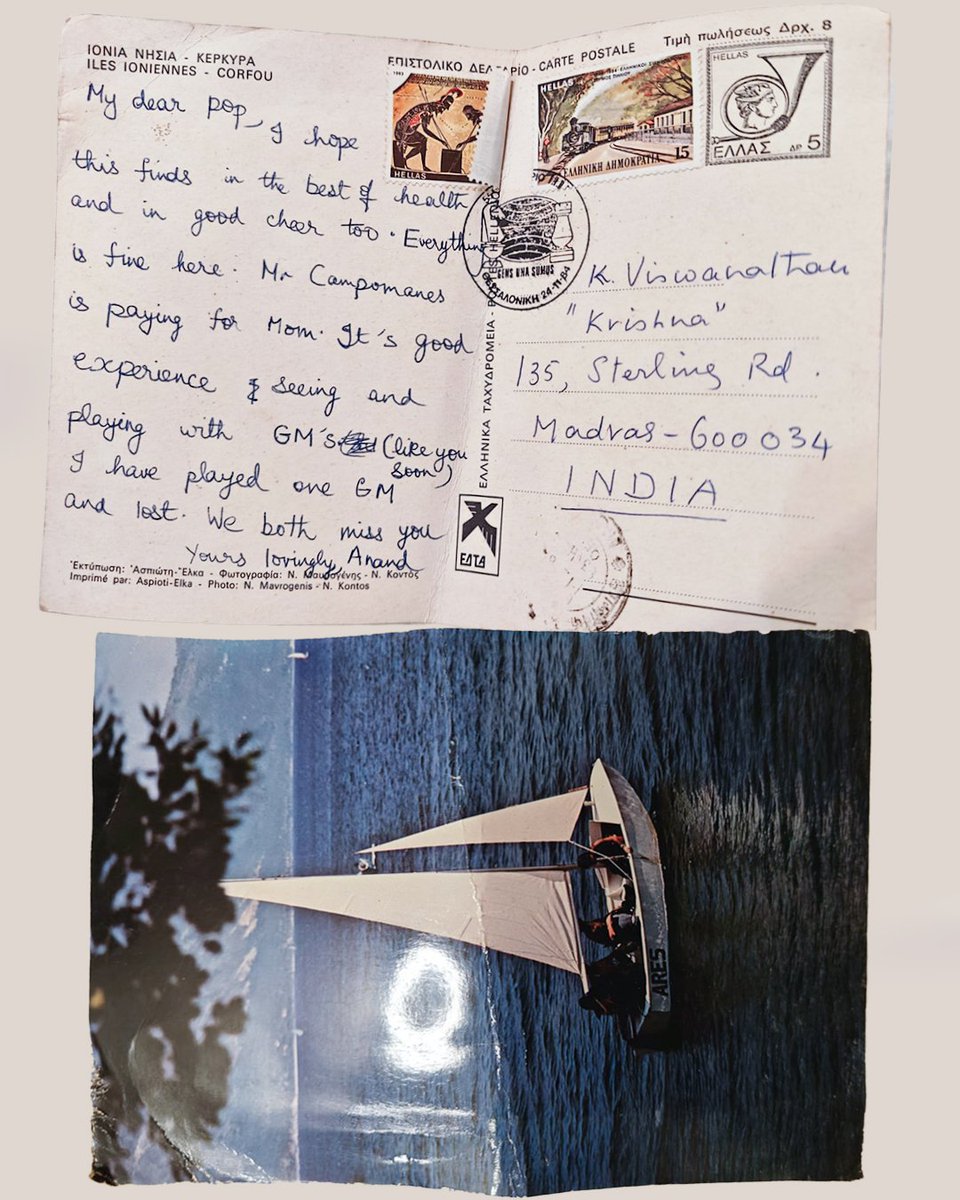 ΙΟΝΙΑ ΝΗΣΙΑ - ΚΕΡΚΥΡΑ
ILES IONIENNES - CORFOU
ΕΠΙΣΤΟΛΙΚΟ ΔΕΛΤΑΡΙΟ - CARTE POSTALE
Τιμή πωλήσεως Δρχ. 8
My dear pop, I hope
this finds in the best of health
and in good cheer too. Everything
is fine here. Mr Campomanes
is paying for Mom. It's good
experience seeing and
playing with GM's (like you
soon)
I have played one GM
and lost. We both miss you
Yours lovingly, Anand
Ἐκτύπωση: Ἀσπιώτη-Ἔλκα - Φωτογραφία: Ν. Μαυρογένης - Ν. Κοντός
Imprimé par: Aspioti-Elka - Photo: N. Mavrogenis - N. Kontos
1983
HELLAS
HELLAS
ΕΛΛΗΝΙΚΗ ΔΗΜΟΚΡΑΤΙΑ 15
HELLAS
ΕΛΛΑΣ ΔΡ 5
GENS UNA SUMUS
ΘΕΣΣΑΛΟΝΙΚΗ 24-11-84
ΕΛΛΗΝΙΚΑ ΤΑΧΥΔΡΟΜΕΙΑ
HELLENIQUES
ΕΛΤΑ
K. Viswanathan
"Krishna"
135, Sterling Rd.
Madras - 600034
INDIA
ARES